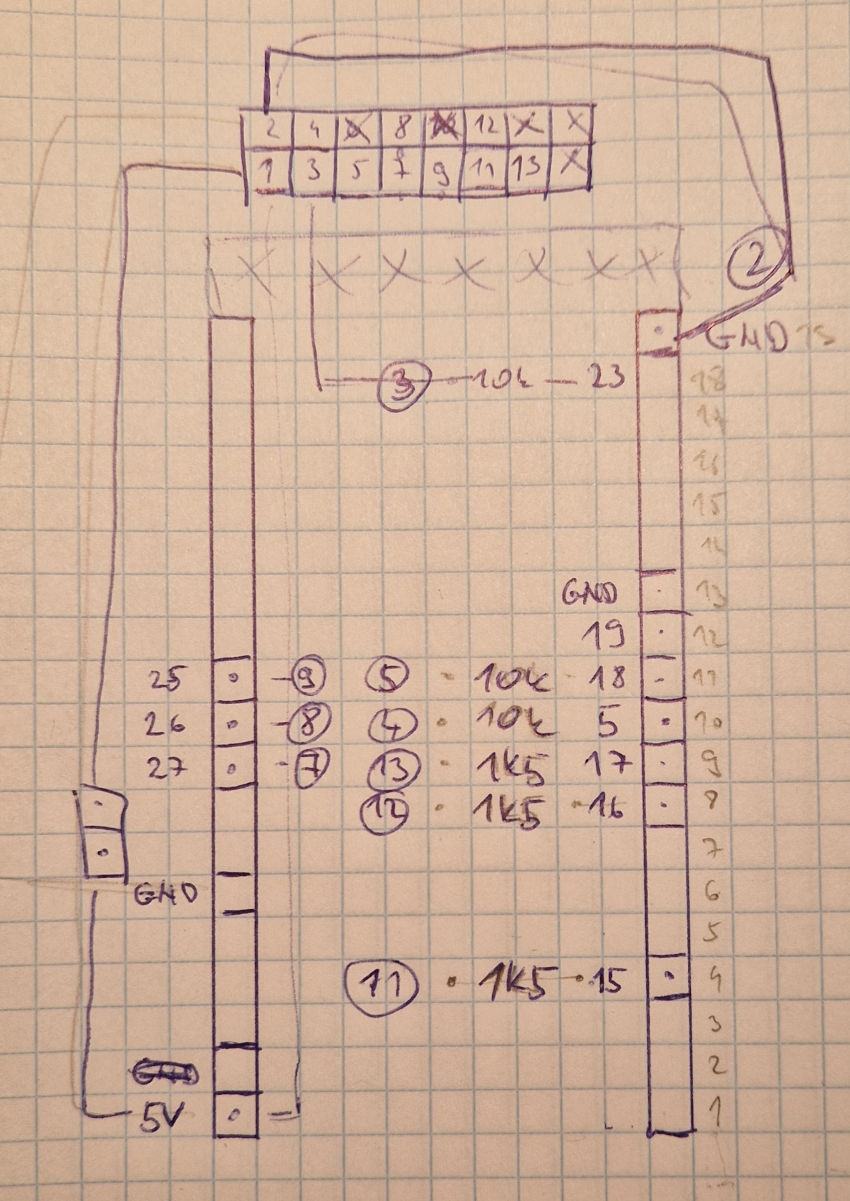 2 4 X 8 X 12 X X
1 3 5 7 9 11 13 X
X X X X X X X
2
GND
3 10k 23 18
16
15
14
GND 13
19 12
25 9 5 10k 18 11
26 8 4 10k 5 10
27 7 13 1K5 17 9
12 1K5 16 8
7
GND 6
5
11 1K5 15 4
3
2
5V 1